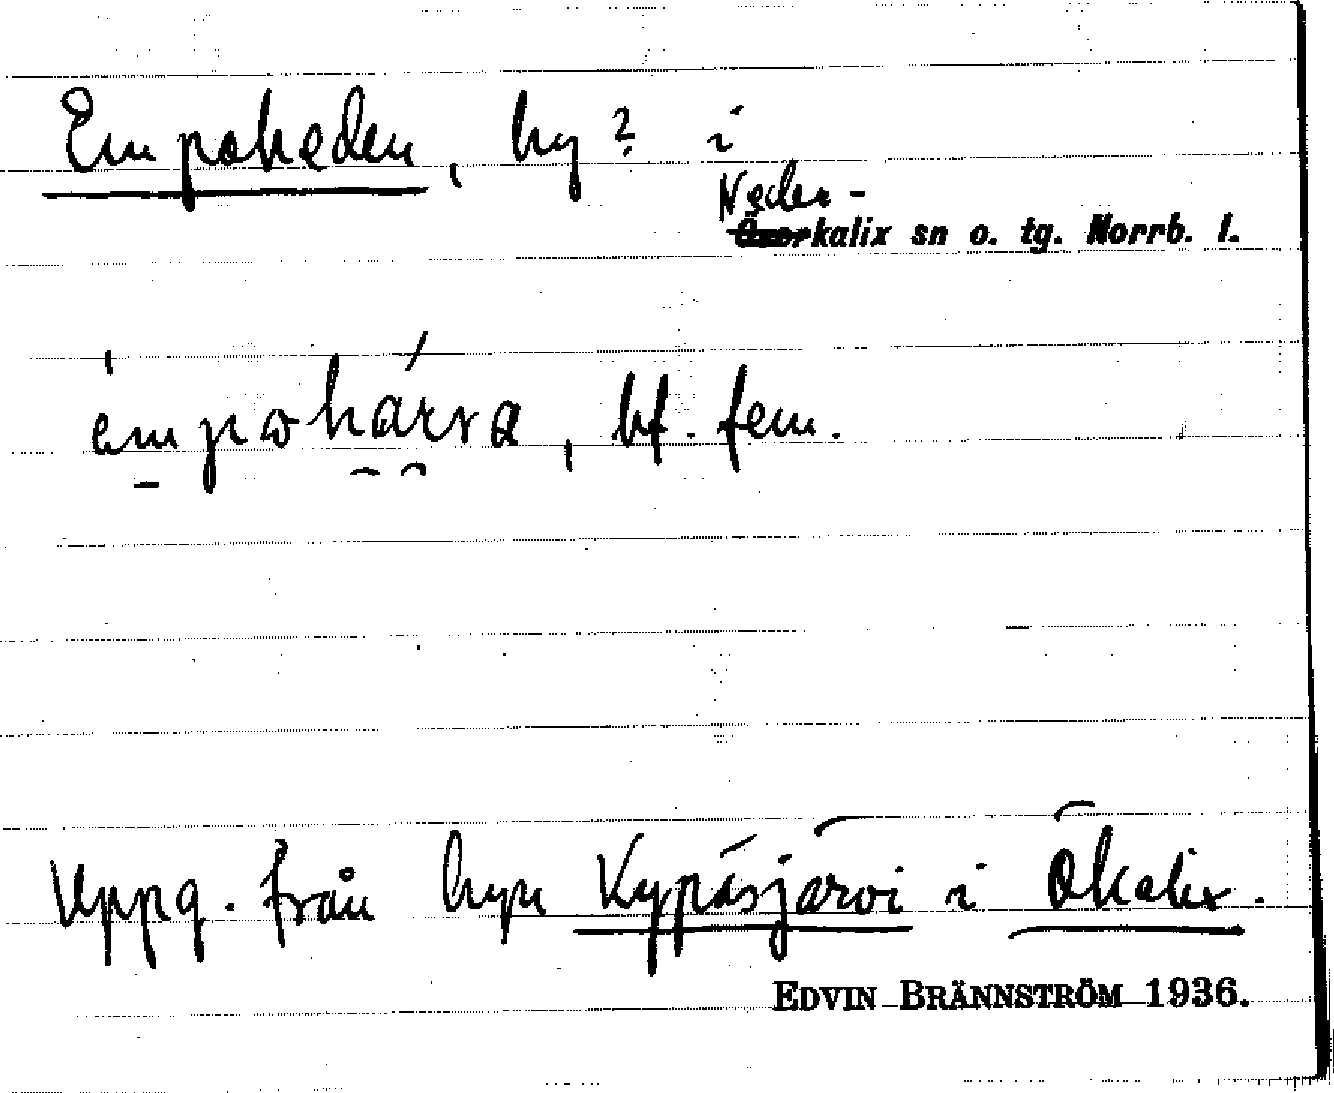 Empoheden, by? i
Neder-
kalix sn o. tg. Norrb. l.
bf. fem.
Uppg. från byn Kypåsjärvi i Ökalix.
EDVIN BRÄNNSTRÖM 1936.